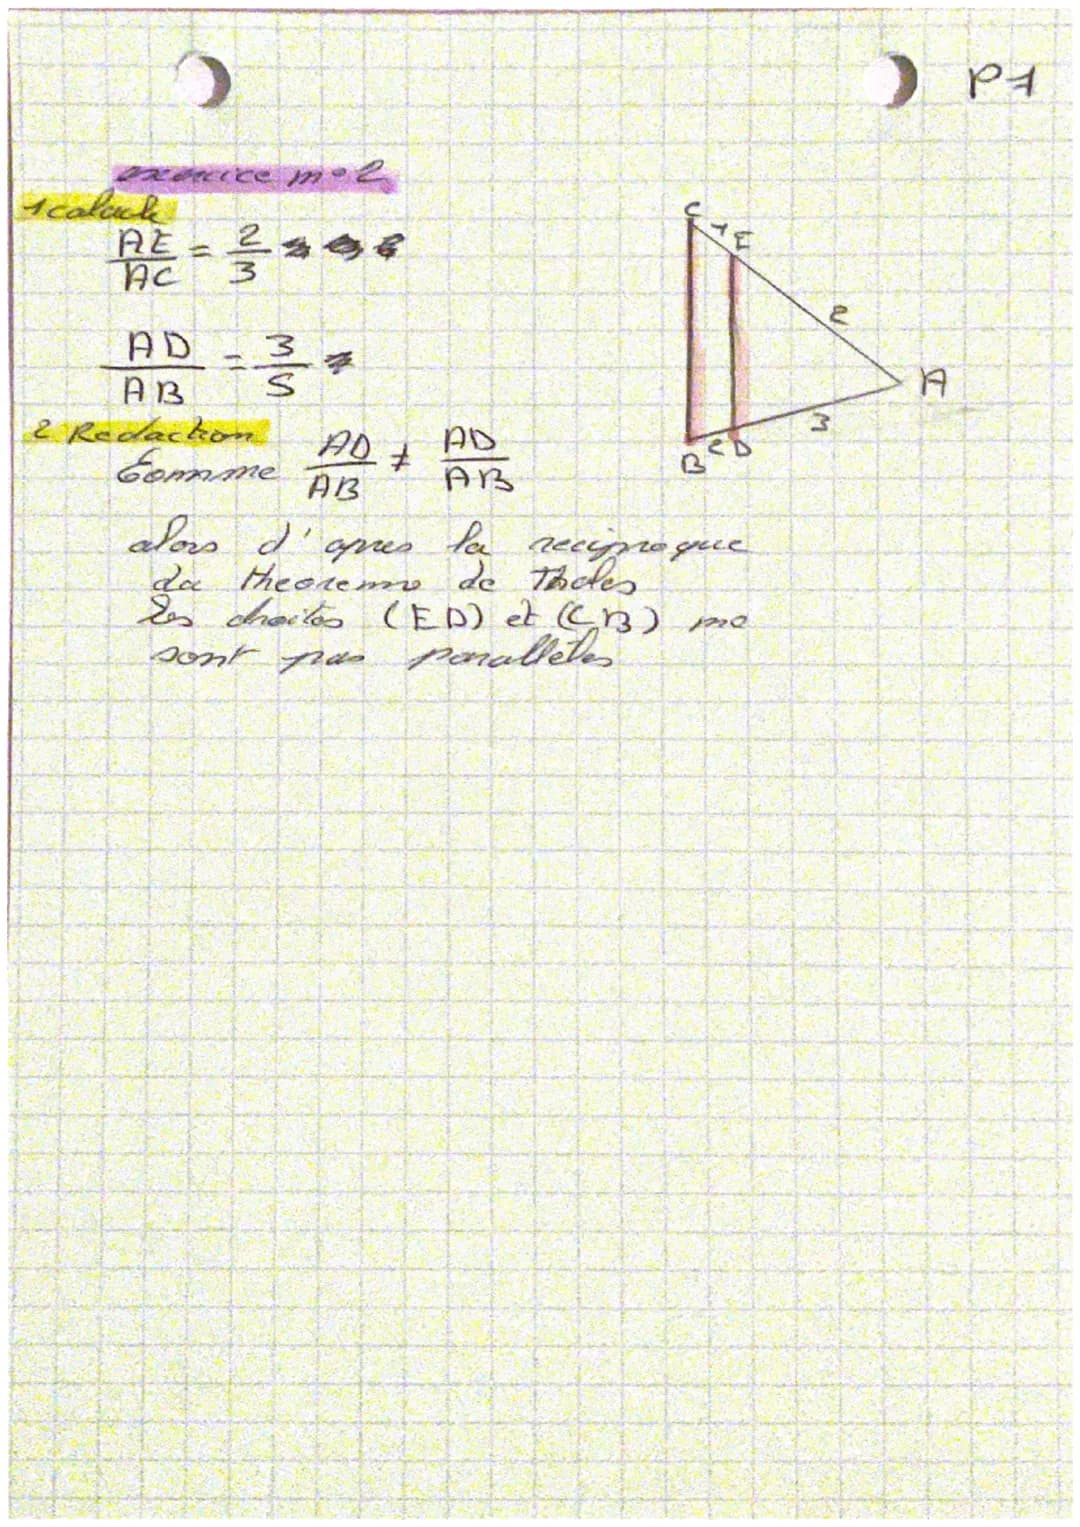 P1
exercice n°2
1 calcule
AE/AC = 2/3
AD/AB = 3/5
2 Redaction
Comme AD/AB ≠ AD/AB
alors d'apres la reciproque
du theoreme de Thales
les droites (ED) et (CB) ne
sont pas parallèles
C 1 E
2
A
3
B 2 D